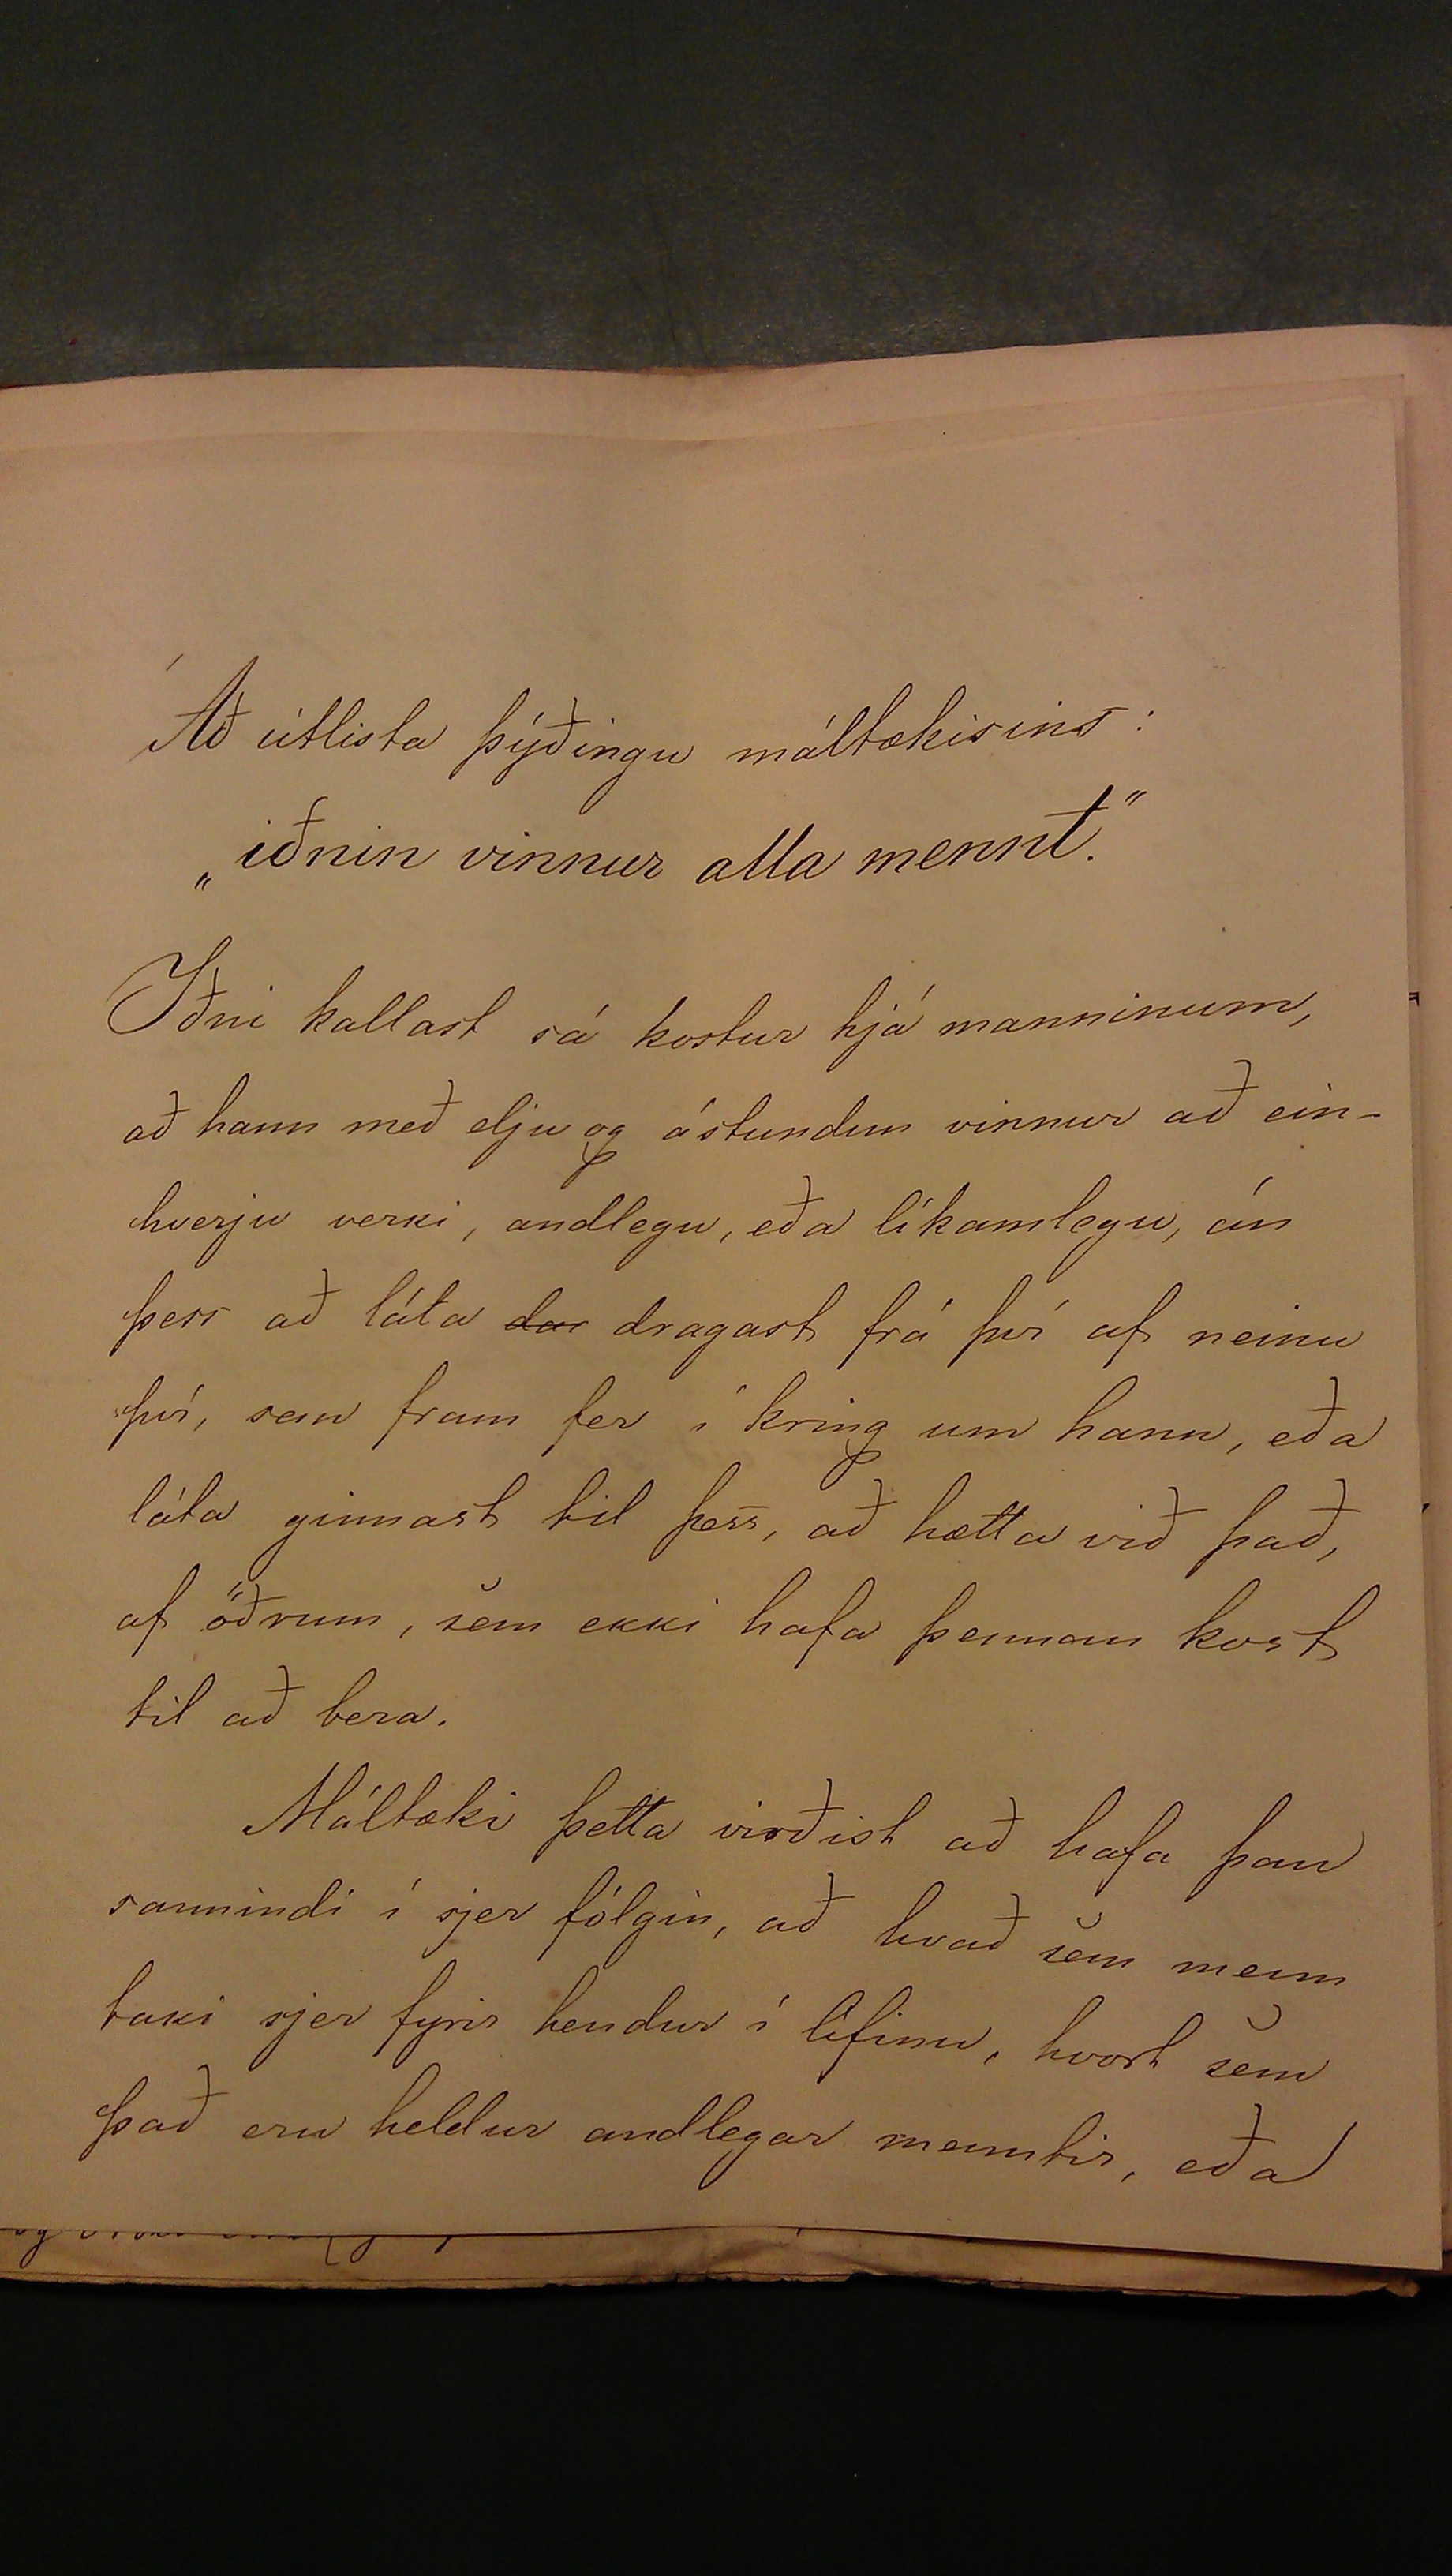 Að útlista þýðingu máltækisins:
„iðnin vinnur alla mennt."
Iðni kallast sá kostur hjá manninum,
að hann með elju og ástundun vinnur að ein-
hverju verki, andlegu, eða líkamlegu, án
þess að láta dar dragast frá því af neinu
því, sem fram fer í kring um hann, eða
láta ginnast til þess, að hætta við það,
af öðrum, sem ekki hafa þennan kost
til að bera.
Máltæki þetta virðist að hafa þau
sannindi í sjer fólgin, að hvað sem menn
taki sjer fyrir hendur í lífinu, hvort sem
það eru heldur andlegar menntir, eða